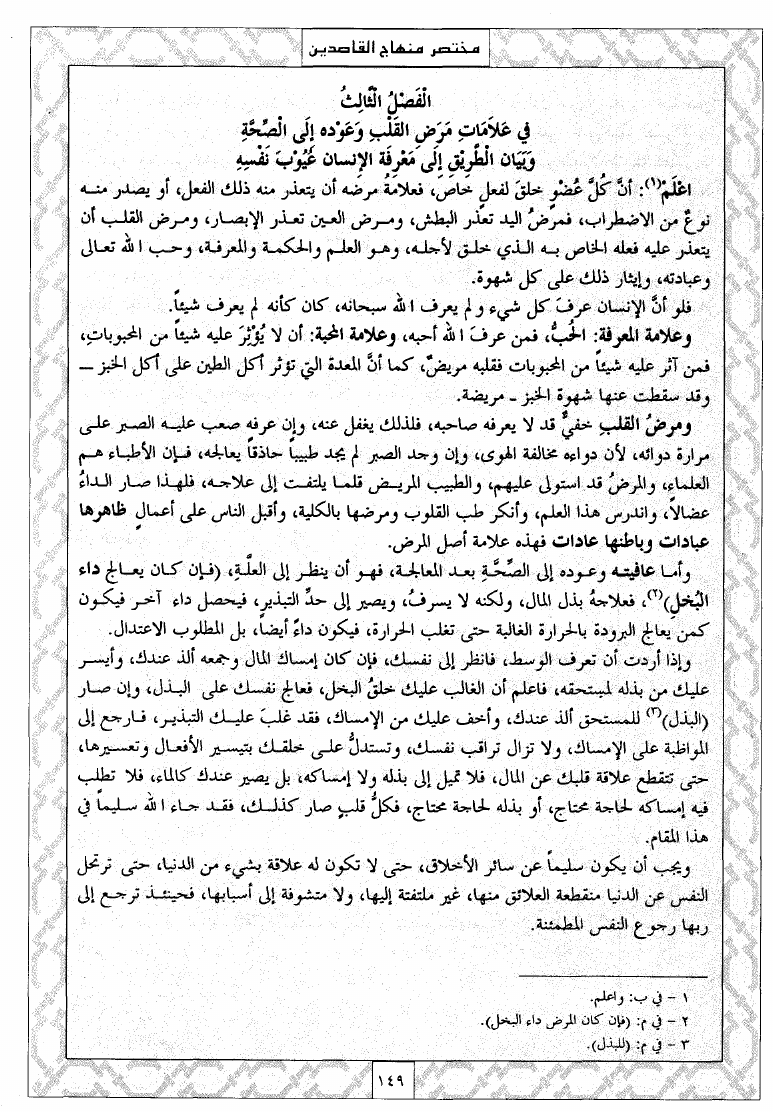 مختصر منهاج القاصدين
الْفَصْلُ الْثَّالِثُ
فِي عَلَامَاتِ مَرَضِ القَلْبِ وَعَوْدِه إِلَى الْصِّحَّةِ
وَبَيَان الْطَّرِيْقِ إِلَى مَعْرِفَة الإِنْسان عُيُوْبَ نَفْسِهِ
اعْلَمْ(١): أنَّ كُلَّ عُضْوٍ خلقَ لفعلٍ خاص، فعلامةُ مرضه أن يتعذر منه ذلك الفعل، أو يصدر منه
نوعٌ من الاضطراب، فمرضُ اليد تعذّر البطش، ومرض العين تعذر الإبصار، ومرض القلب أن
يتعذر عليه فعله الخاص به الذي خلق لأجله، وهو العلم والحكمة والمعرفة، وحب الله تعالى
وعبادته، وإيثار ذلك على كل شهوة.
فلو أنَّ الإنسان عرفَ كل شيء ولم يعرف الله سبحانه، كان كأنه لم يعرف شيئاً.
وعلامة المعرفة: الحُبُّ، فمن عرفَ الله أحبه، وعلامة المحبة: أن لا يُؤْثِرَ عليه شيئاً من المحبوباتِ،
فمن آثر عليه شيئاً من المحبوبات فقلبه مريضٌ، كما أنَّ المعدة التي تؤثر أكل الطين على أكل الخبز ــ
وقد سقطت عنها شهوة الخبز ـ مريضة.
ومرضُ القلبِ خفيٌّ قد لا يعرفه صاحبه، فلذلك يغفل عنه، وإن عرفه صعب عليه الصبر على
مرارة دوائه، لأن دواءه مخالفة الهوى، وإن وجد الصبر لم يجد طبيباً حاذقاً يعالجه، فإن الأطباء هم
العلماء، والمرضُ قد استولى عليهم، والطبيب المريض قلما يلتفت إلى علاجه، فلهذا صار الداءُ
عضالاً، واندرس هذا العلم، وأنكر طب القلوب ومرضها بالكلية، وأقبل الناس على أعمالٍ ظاهرها
عبادات وباطنها عادات فهذه علامة أصل المرض.
وأما عافيته وعوده إلى الصِّحَّةِ بعد المعالجة، فهو أن ينظر إلى العلَّةِ، (فإن كان يعالج داء
البُخلِ)(٢)، فعلاجهُ بذل المال، ولكنه لا يسرفُ، ويصير إلى حدِّ التبذيرِ، فيحصل داء آخر فيكون
كمن يعالج البرودة بالحرارة الغالبة حتى تغلب الحرارة، فيكون داءً أيضاً، بل المطلوب الاعتدال.
وإذا أردت أن تعرف الوسط، فانظر إلى نفسك، فإن كان إمساك المال وجمعه ألذ عندك، وأيسر
عليك من بذله لمستحقه، فاعلم أن الغالب عليك خلقُ البخل، فعالج نفسك على البذل، وإن صار
(البذل)(٣) للمستحق ألذ عندك، وأخف عليك من الإمساك، فقد غلبَ عليك التبذير، فارجع إلى
المواظبة على الإمساك، ولا تزال تراقب نفسك، وتستدلُّ على خلقك بتيسير الأفعال وتعسيرها،
حتى تتقطع علاقة قلبك عن المال، فلا تميل إلى بذله ولا إمساكه، بل يصير عندك كالماء، فلا تطلب
فيه إمساكه لحاجة محتاج، أو بذله لحاجة محتاج، فكلُّ قلبٍ صار كذلك، فقد جاء الله سليماً في
هذا المقام.
ويجب أن يكون سليماً عن سائر الأخلاق، حتى لا تكون له علاقة بشيء من الدنيا، حتى ترتحل
النفس عن الدنيا منقطعة العلائق منها، غير ملتفتة إليها، ولا متشوفة إلى أسبابها، فحينئذ ترجع إلى
ربها رجوع النفس المطمئنة.
١ – في ب: واعلم.
٢ – في م: (فإن كان المرض داء البخل).
٣ – في م: (للبذل).
١٤٩